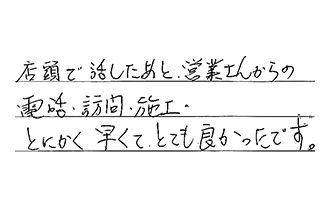 店頭で話したあと、営業さんからの
電話・訪問・施工・
とにかく早くて、とても良かったです。